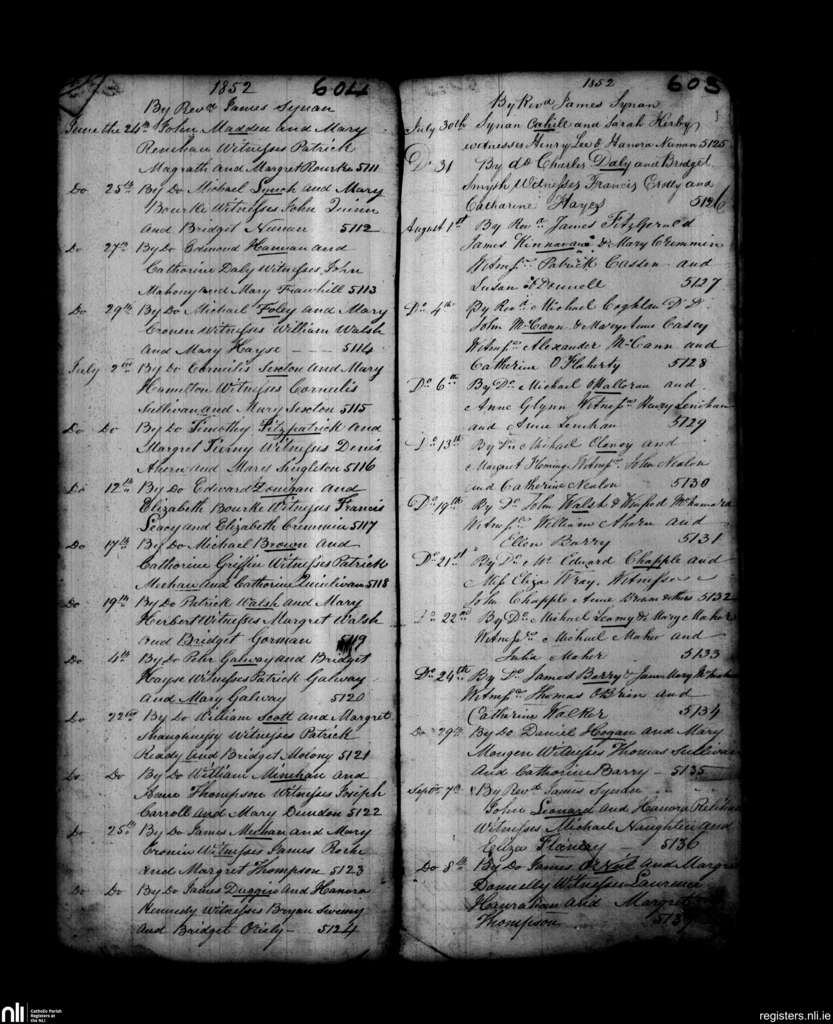 1852 604
By Revd James Synan
June the 24th John Madden and Mary
Renehan Witnesses Patrick
Magrath and Margret Rourke 5111
Do 25th By Do Michael Lynch and Mary
Bourke Witnesses John Quinn
And Bridget Nunan 5112
Do 27th By Do Edmond Hannan and
Catharine Daly Witnesses John
Mahony and Mary 5113
Do 29th By Do Michael Foley and Mary
Cronen Witnesses William Walsh
And Mary Hayse - - - 5114
July 2nd By Do Cornelis Sexton and Mary
Hamelton Witnesses Cornelis
Sullivan and Mary Sexton 5115
Do Do By Do Timothy Fitzpatrick and
Margret Witnesses Denis
Ahern and Mary Singleton 5116
Do 12th By Do Edward Lonigan and
Elizabeth Bourke Witnesses Francis
Leacy and Elizabeth Cremmin 5117
Do 17th By Do Michael Brown and
Catharine Griffin Witnesses Patrick
Meehan And Catharine Quinlivan 5118
Do 19th By Do Patrick Walsh and Mary
Herbert Witnesses Margret Walsh
And Bridget Gorman 5119
Do 4th By Do Peter Galway and Bridget
Hayse Witnesses Patrick Galway
And Mary Galway 5120
Do 22nd By Do William Scott and Margret
Shaughnessy Witnesses Patrick
Ready and Bridget Molony 5121
Do Do By Do William Minehan And
Anne Thompson Witnesses Joseph
Carroll and Mary Dundon 5122
Do 25th By Do James Meehan and Mary
Cronin Witnesses James Roche
And Margret Thompson 5123
Do Do By Do James Duggin And Hanora
Kennedy Witnesses Bryan Sweeny
And Bridget 5124
1852 605
By Revd James Synan
July 30th Synan Cahill and Sarah Kirby
witnesses Henry Lee & Hanora Nunan 5125
Do 31 By do Charles Daly and Bridget
Smyth Witnesses Francis and
Catharine Hayes 5126
August 1st By Revd James FitzGerald
James Kinnavane & Mary Cremmin
Witnesses Patrick Cassen and
Susan O'Donnell 5127
Do 4th By Revd Michael Coghlan D.D.
John McCann & Mary Anne Casey
Witnesses Alexander McCann and
Catherine O'Flaherty 5128
Do 6th By Do Michael O'Halloran and
Anne Glynn Witnesses Henry Lenihan
and Anne Lenihan 5129
Do 13th By Do Michael Clancy and
Margaret Fleming Witnesses John Nealon
and Catherine Nealon 5130
Do 19th By Do John Walsh & Winifred McNamara
Witnesses William Ahern and
Ellen Barry 5131
Do 21st By Do Mr Edward Chapple and
Miss Eliza Wray. Witnesses
John Chapple & Anne & others 5132
Do 22nd By Do Michael Leamy & Mary Maher
Witnesses Michael Maher and
Julia Maher 5133
Do 24th By Do James Barry & Jane Mary
Witnesses Thomas OBrien and
Catherine Walker 5134
Do 29th By Do Daniel Hogan and Mary
Mongen Witnesses Thomas Sullivan
And Catharine Barry - 5135
Septbr 7th By Revd James Synan
John Leonard and Hanora
Witnesses Michael Naughten and
Eliza Flanley - 5136
Do 8th By Do James O'Neil and Margret
Donnelly Witnesses Laurence
Hanrahan and Margret
Thompson 5137
nli Catholic Parish
Registers at
the NLI
registers.nli.ie